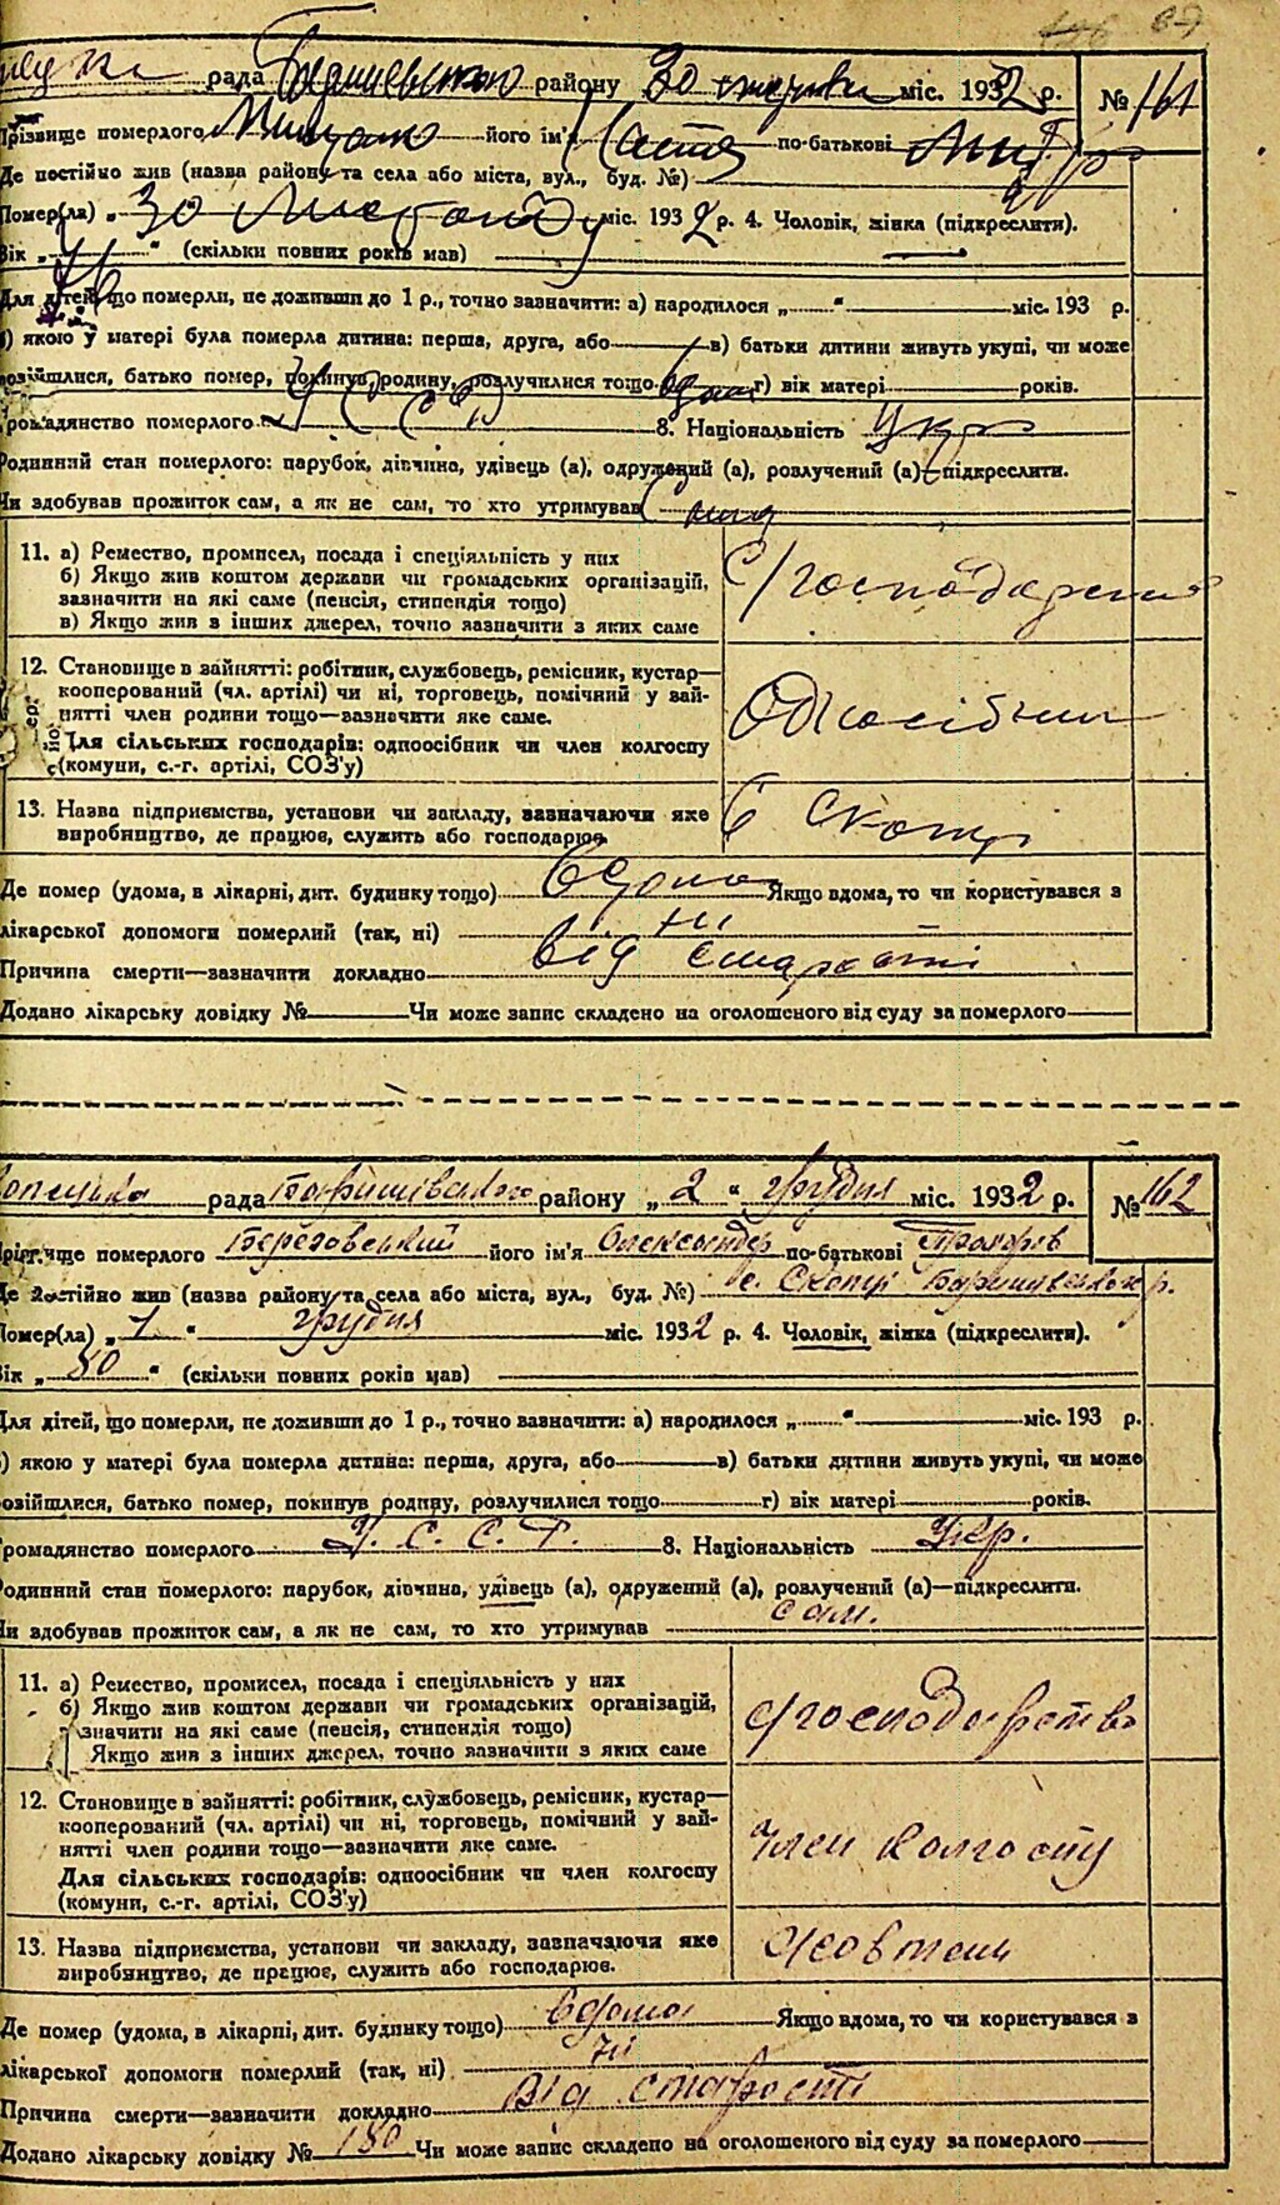 рада Баришевського району 30 міс. 1932 р. № 161
Прізвище померлого його ім'я Настя по-батькові
Де постійно жив (назва району та села або міста, вул., буд. №)
Помер(ла) „ 30 Листопаду міс. 1932 р. 4. Чоловік, жінка (підкреслити).
Вік „ “ (скільки повних років мав)
Для дітей, що померли, не доживши до 1 р., точно зазначити: а) народилося „ “ міс. 193 р.
) якою у матері була померла дитина: перша, друга, або в) батьки дитини живуть укупі, чи може
розійшлися, батько помер, покинув родину, розлучилися тощо г) вік матері років.
Громадянство померлого УССР 8. Національність Укр
Родинний стан померлого: парубок, дівчина, удівець (а), одружений (а), розлучений (а)—підкреслити.
Чи здобував прожиток сам, а як не сам, то хто утримував
11. а) Ремество, промисел, посада і спеціяльність у них
б) Якщо жив коштом держави чи громадських організацій,
зазначити на які саме (пенсія, стипендія тощо)
в) Якщо жив з інших джерел, точно зазначити з яких саме
С/господарств
12. Становище в зайнятті: робітник, службовець, ремісник, кустар—
кооперований (чл. артілі) чи ні, торговець, помічний у зай-
нятті член родини тощо—зазначити яке саме.
Для сільських господарів: одноосібник чи член колгоспу
(комуни, с.-г. артілі, СОЗ'у)
Одноосібник
13. Назва підприємства, установи чи закладу, зазначаючи яке
виробництво, де працює, служить або господарює.
в Скопці
Де помер (удома, в лікарні, дит. будинку тощо) вдома Якщо вдома, то чи користувався з
лікарської допомоги померлий (так, ні) ні
Причина смерти—зазначити докладно від старости
Додано лікарську довідку № Чи може запис складено на оголошеного від суду за померлого
рада Баришівського району „ 2 “ грудня міс. 1932 р. № 162
Прізвище померлого Березовський його ім'я Олександр по-батькові Прохорів
Де постійно жив (назва району та села або міста, вул., буд. №) с. Скопці Баришівськог р.
Помер(ла) „ 1 “ грудня міс. 1932 р. 4. Чоловік, жінка (підкреслити).
Вік „ 80 “ (скільки повних років мав)
Для дітей, що померли, не доживши до 1 р., точно зазначити: а) народилося „ “ міс. 193 р.
) якою у матері була померла дитина: перша, друга, або в) батьки дитини живуть укупі, чи може
розійшлися, батько помер, покинув родину, розлучилися тощо г) вік матері років.
Громадянство померлого У. С. С. Р. 8. Національність Укр.
Родинний стан померлого: парубок, дівчина, удівець (а), одружений (а), розлучений (а)—підкреслити.
Чи здобував прожиток сам, а як не сам, то хто утримував сам.
11. а) Ремество, промисел, посада і спеціяльність у них
б) Якщо жив коштом держави чи громадських організацій,
зазначити на які саме (пенсія, стипендія тощо)
Якщо жив з інших джерел, точно зазначити з яких саме
с/господарство
12. Становище в зайнятті: робітник, службовець, ремісник, кустар—
кооперований (чл. артілі) чи ні, торговець, помічний у зай-
нятті член родини тощо—зазначити яке саме.
Для сільських господарів: одноосібник чи член колгоспу
(комуни, с.-г. артілі, СОЗ'у)
член колгоспу
13. Назва підприємства, установи чи закладу, зазначаючи яке
виробництво, де працює, служить або господарює.
Жовтень
Де помер (удома, в лікарні, дит. будинку тощо) вдома Якщо вдома, то чи користувався з
лікарської допомоги померлий (так, ні) ні
Причина смерти—зазначити докладно від старости
Додано лікарську довідку № 150 Чи може запис складено на оголошеного від суду за померлого